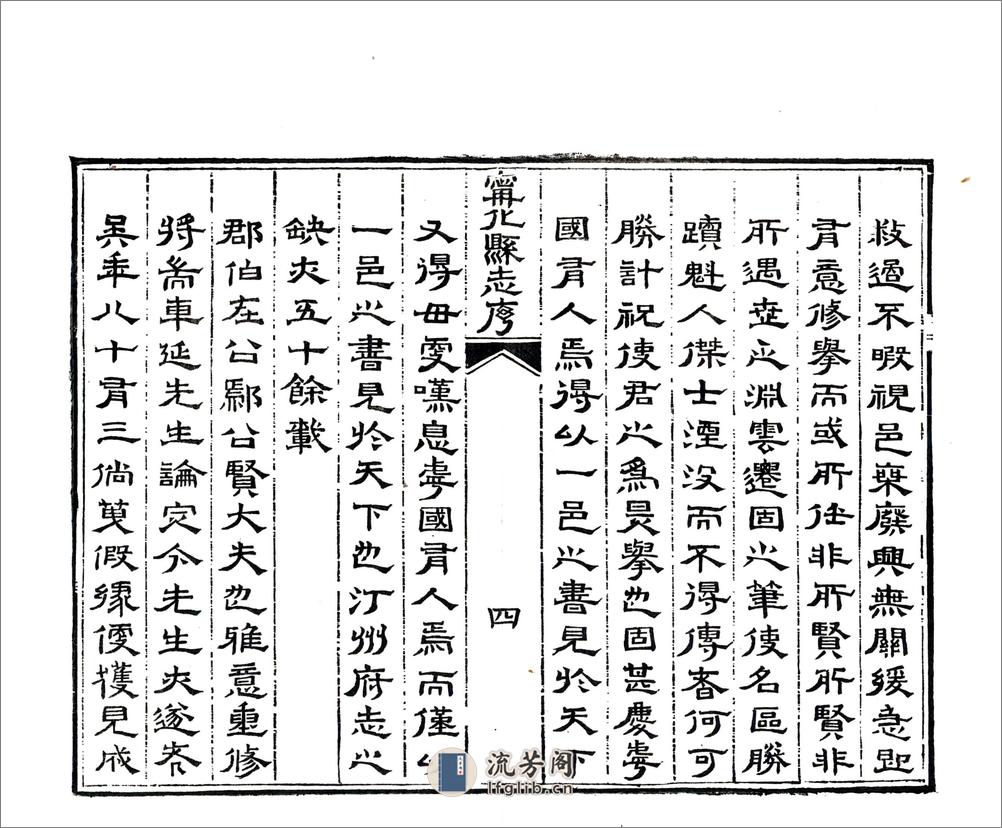 救過不暇視邑棄廢興無關緩急即
有意修舉而或所任非所賢所賢非
所遇世乏淵雲遷固之筆使名區勝
蹟魁人傑士湮沒而不得傳者何可
勝計祝使君之為是舉也固甚慶虖
國有人焉得以一邑之書見於天下
甯化縣志序
四
又得毋更嘆息虖國有人焉而僅以
一邑之書見於天下也汀州府志之
缺亦五十餘載
郡伯在公鄢公賢大夫也雅意重修
將耑車延先生論定今先生亦邃老
矣年八十有三倘假緣便獲見成
流芳阁
lfglib.cn